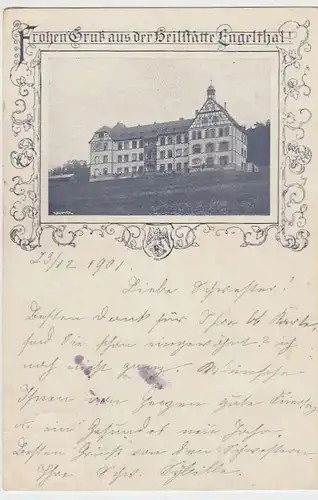 Frohen Gruß aus der Heilstätte Engelthal!
23/12 1901.
Liebe Schwester!
Besten Dank für Ihre lb Karte,
sind Sie schon eingewöhnt? ich
noch nicht ganz. Wünsche
Ihnen von Herzen gute Feiertag
u. ein Gesundes neu Jahr.
Besten Gruß von den Schwestern
Ihre Schw.